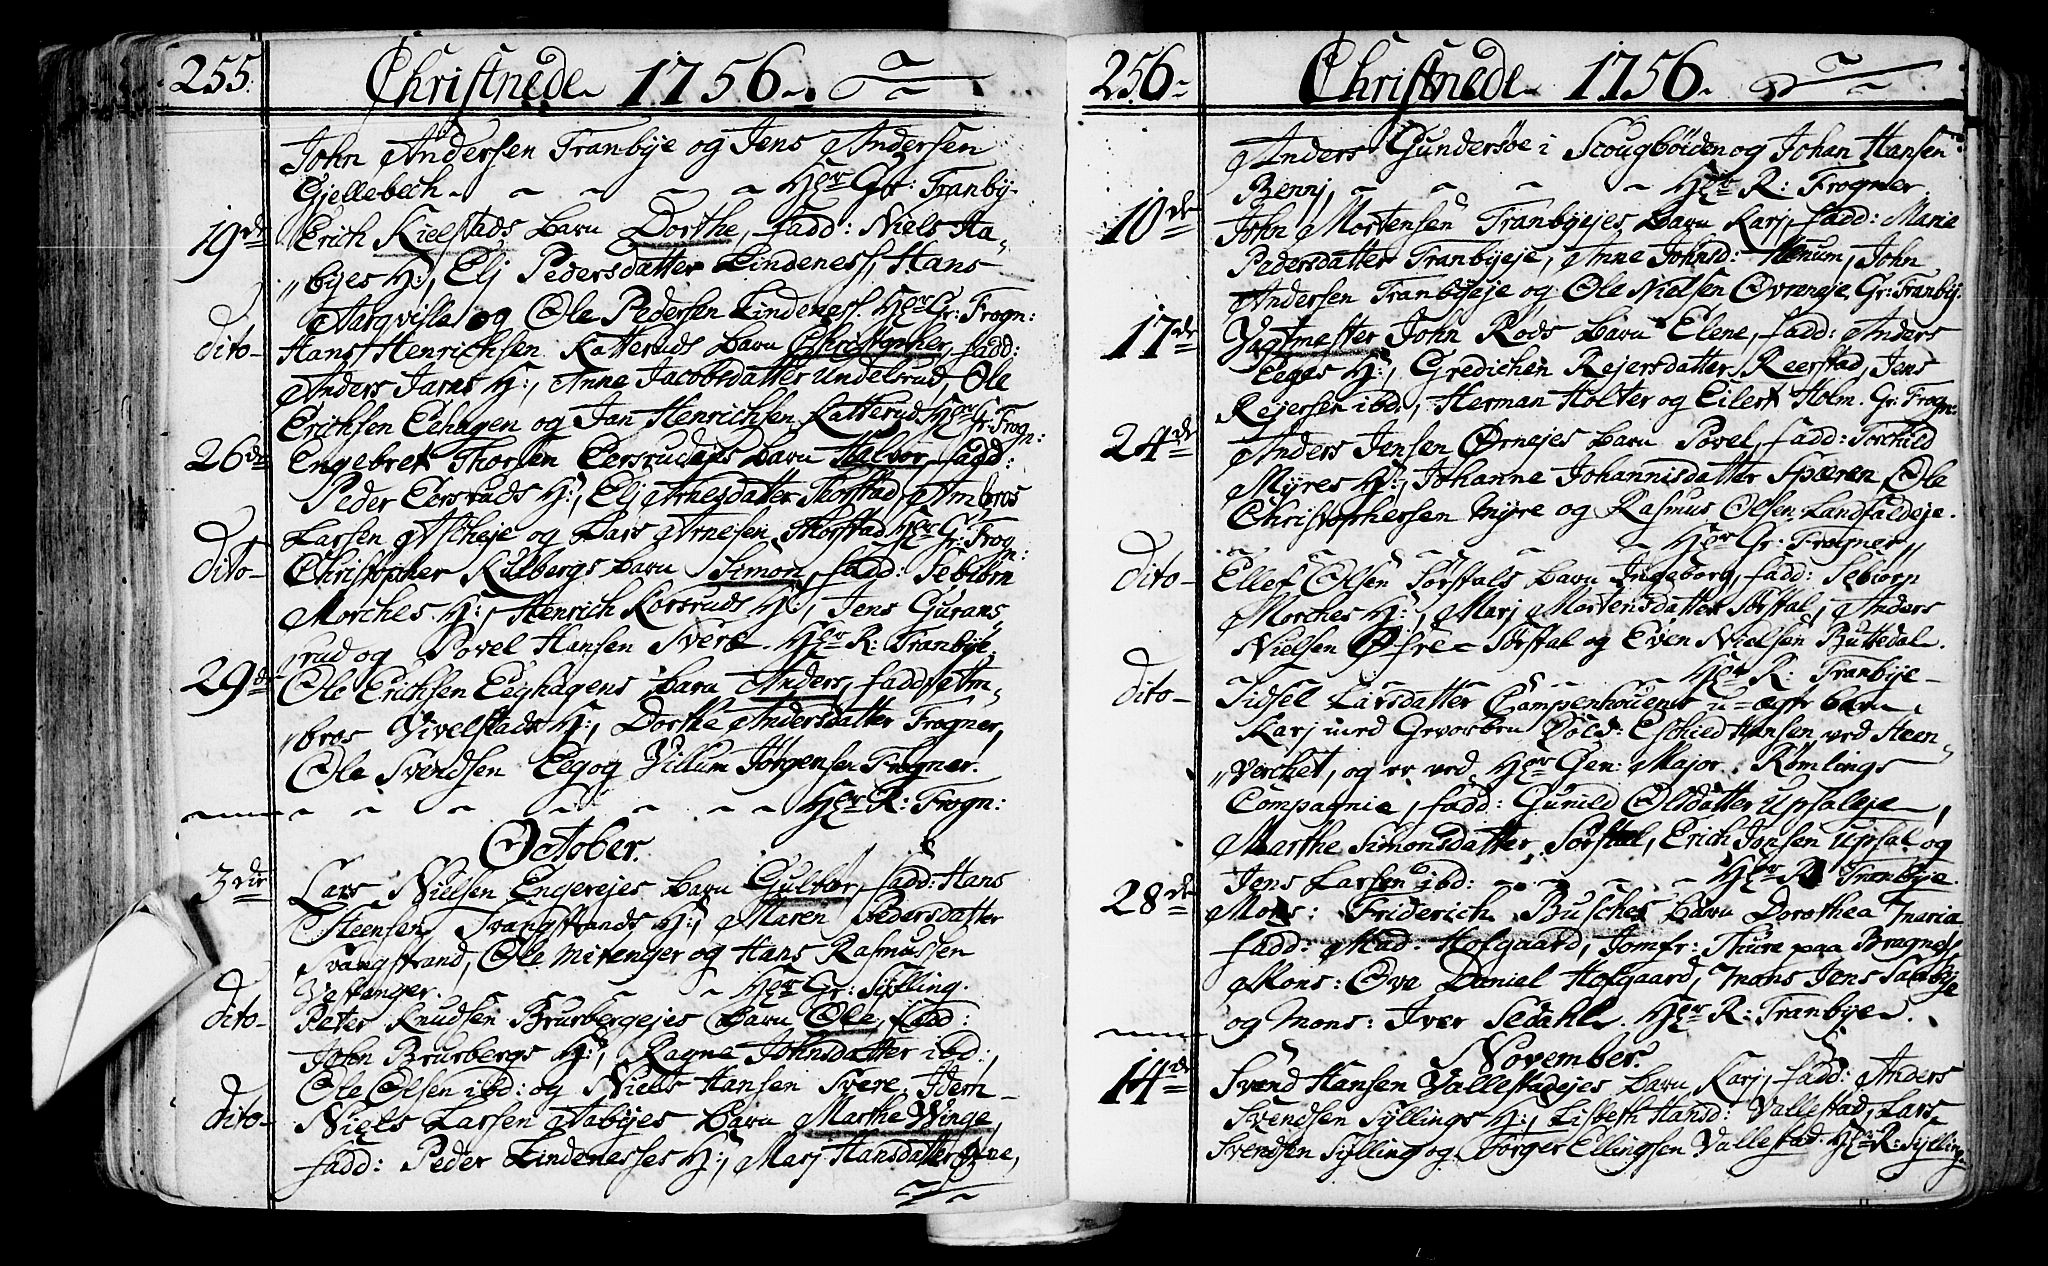 255. Christnede 1756.
John Andersen Tranbye og Jens Andersen
Gjellebech. Her Gr: Tranby.
19de Erich Kielstads barn Dorthe, fadd: Niels Ha-
„byes H:, Elj Pedersdatter Lindeness, Hans
Aarqvisla og Ole Pedersen Lindeness. Her Gr: Frogn:
dito- Hans Henrichsen Katteruds barn Christopher, fadd:
Anders Jarns H:, Anne Jacobsdatter Undelsrud, Ole
Erichsen Eehagen og Jan Henrichsen Katterud. Her Gr: Frogn:
26de Engebret Thorsen Eersrudejes barn Halvor, fadd:
Peder Eersruds H:, Elj Arnesdatter Torstad, Ambros
Larsen Ascheje og Lars Arnesen Thorstad. Her Gr: Frogn:
dito- Christopher Kulbergs barn Simon, fadd: Tebiørn
Morches H:, Henrich Korsruds H:, Jens Gurans„
rud og Povel Hansen Svere. Her R: Tranbye.
29de Ole Erichsen Eeghagens barn Anders, fadd: Am-
„bros Vivelstads H:, Dorthe Andersdatter Frogner,
Ole Svendsen Eeg og Villum Jørgensen Frogner.
Her R: Frogn:
October.
3die Lars Nielsen Engerejes barn Gulbor, fadd: Hans
Steensen Svangstrands H:, Maren Pedersdatter
Svangstrand, Ole Mitenger og Hans Rasmussen
Vestanger. Her Gr: Sylling.
dito- Peter Knudsen Brurbergejes barn Ole fadd:
John Brurbergs H:, Ragne Johnsdatter ibd:,
Ole Olsen ibd: og Niels Hansen Svere. Idem-
dito- Niels Larsen Aabyes barn Marthe Winge,
fadd: Peder Lindenesses H:, Marj Hansdatter
256 Christnede 1756.
Anders Gundersøe i Scougboiden og Johan Hansen
Bennj, Her R: Frogner.
10de John Mortensen Tranbyejes barn Karj, fadd: Maria
Pedersdatter Tranbyeje, Anne Johnsd: Henum, John
Andersen Tranbyeje og Ole Nielsen Øvreneje, Gr: Tranby.
17de Jagtmester John Rods barn Elene, fadd: Anders
Eeges H:, Gredichen Rejersdatter Reerstad, Jens
Rejersen ibd:, Herman Holter og Eilert Holm. Gr: Frogn:
24de Anders Jensen Ørnejes barn Povel, fadd: Torchild
Myres H:, Johanne Johannisdatter Spæren, Ole
Christophersen Myre og Rasmus Olsen Landfaldeje.
Her Gr: Frogner„
dito- Ellef Olsen Sørstals barn Ingeborg, fadd: Tebiørn
Morches H:, Marj Mortensdatter Sørstal, Anders
Nielsen Øfre- Sørstal og Even Nielsen Buttedal.
Her R: Tranbye-
dito- Sidsel Larsdatter Campenhouens u-ægte barn
Karj med Gevorben Sold: Eschild Hansen ved Steen-
„verchet, og er ved Her Gen: Major Rømlings
Compagnie, fadd: Gunild Olsdatter Upsaleje,
Marthe Simonsdatter Sørstal, Erich Jonsen Upsal og
Jens Larsen ibd: Her R: Tranbye.
28de Mons: Friderich Busches barn Dorothea Maria
fadd: Mad: Holgaard, Jomfr: Thure paa Bragnes,
Mons: Ove Daniel Holgaard, Mons Jens
og Mons: Iver Sedahl. Her R: Tranbye.
November.
14de Svend Hansen Vallestadejes barn Karj, fadd: Anders
Svendsen Syllings H:, Lisbeth Hansd: Vallestad, Lars
Svendsen Sylling og Børger Ellingsen Vallestad. Her R: Sylling.